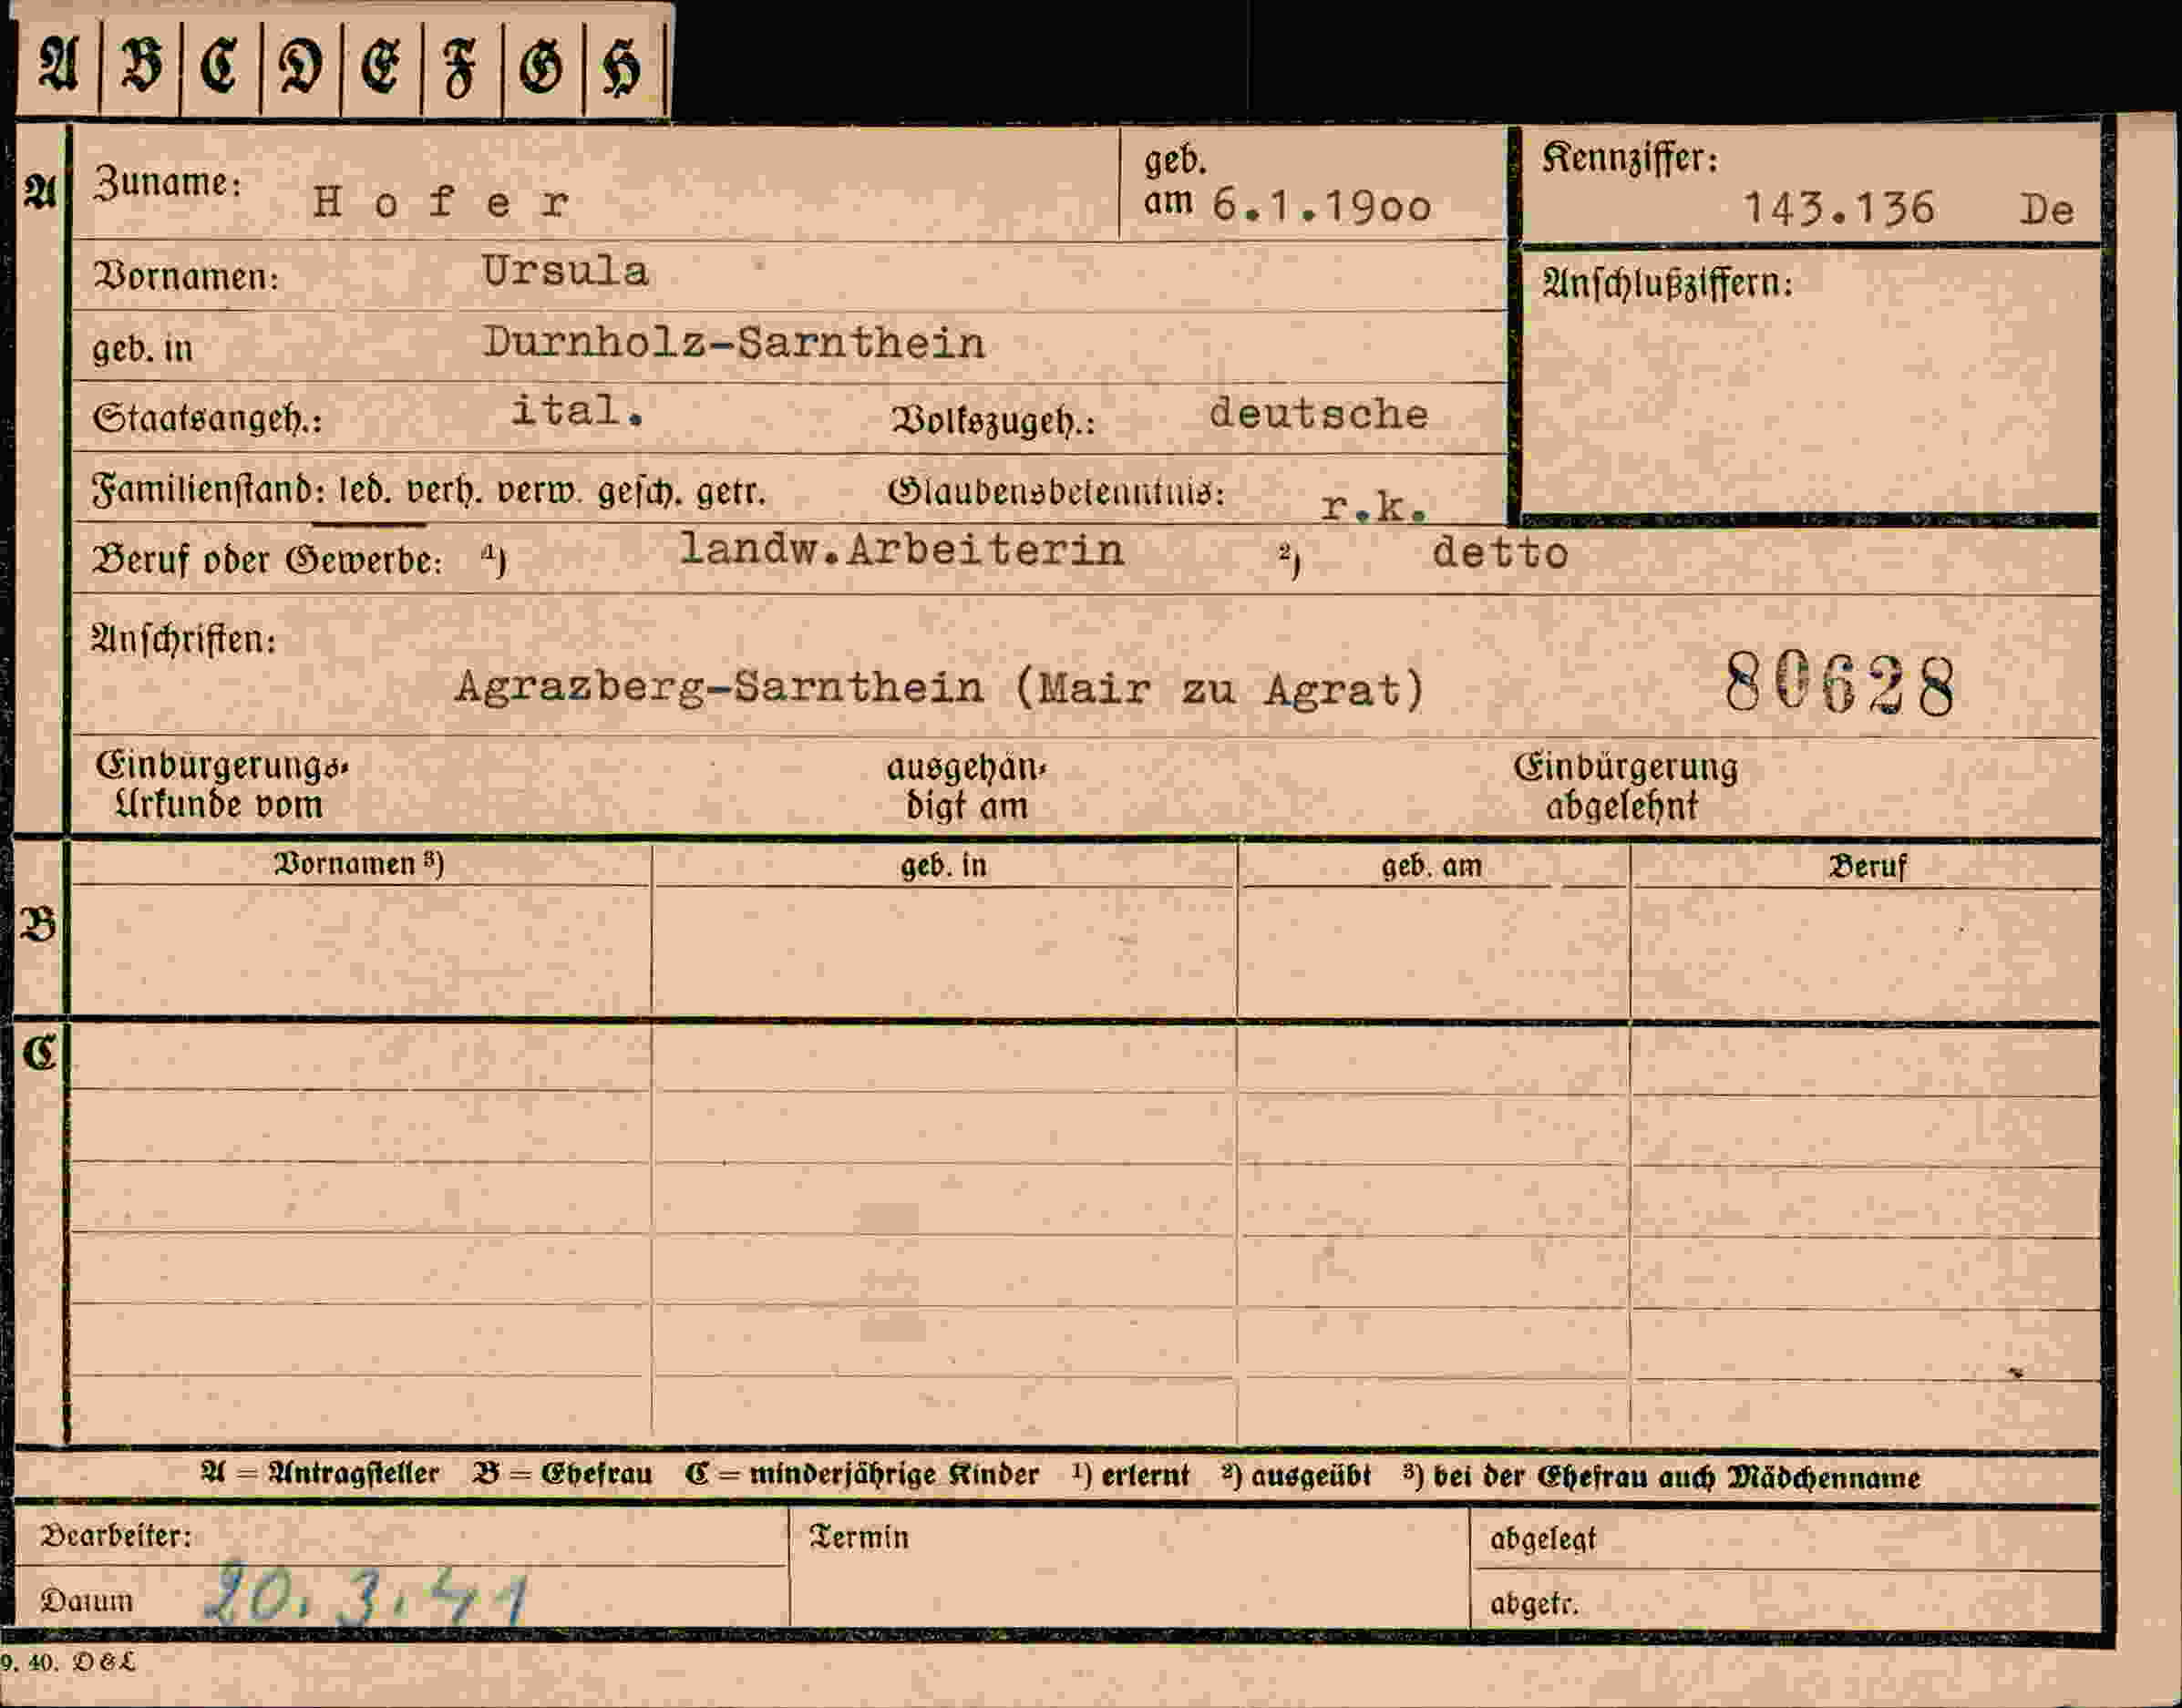 A B C D E F G H
A Zuname: Hofer geb. am 6.1.1900 Kennziffer: 143.136 De
Vornamen: Ursula Anschlußziffern:
geb. in Durnholz-Sarnthein
Staatsangeh.: ital. Volkszugeh.: deutsche
Familienstand: led. verh. verw. gesch. getr. Glaubensbekenntnis: r.k.
Beruf oder Gewerbe: 1) landw.Arbeiterin 2) detto
Anschriften:
Agrazberg-Sarnthein (Mair zu Agrat) 80628
Einbürgerungs- ausgehän- Einbürgerung
Urkunde vom digt am abgelehnt
Vornamen 3) geb. in geb. am Beruf
B
C
A = Antragsteller B = Ehefrau C = minderjährige Kinder 1) erlernt 2) ausgeübt 3) bei der Ehefrau auch Mädchenname
Bearbeiter: Termin abgelegt
Datum 20.3.41 abgetr.
9. 40. D&L